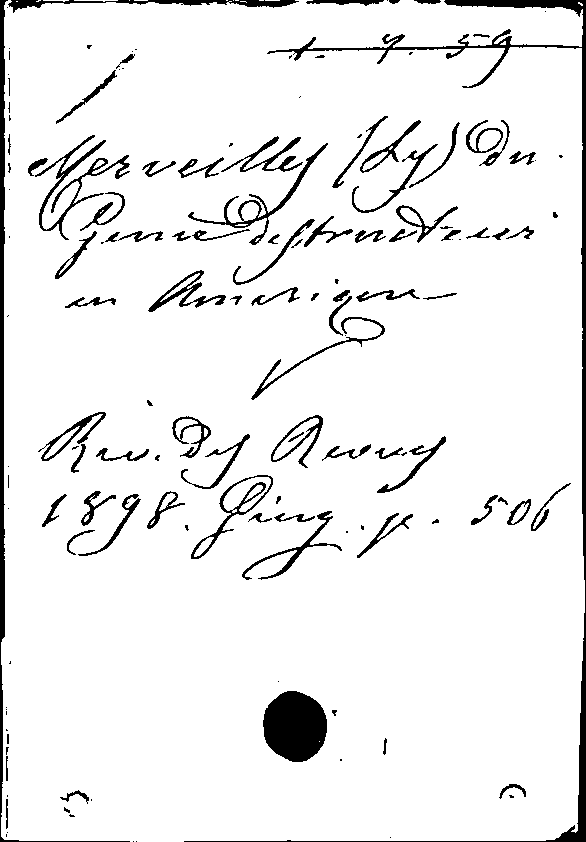 1. 7. 59
Merveilles (Les) du
Génie destructeur
en Amérique
Rev. des Revues
1898. Juin. p. 506